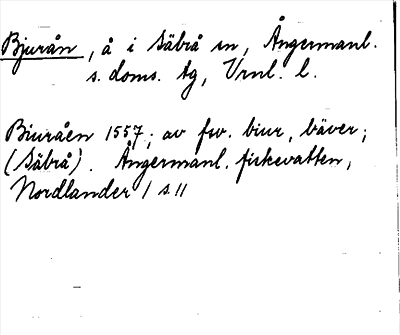 Bjurån, å i Säbrå sn, Ångermanl.
s. doms. tg, Vrnl. l.
Biuråen 1557; av fsv. biur, bäver;
(Säbrå). Ångermanl. fiskevatten,
Nordlander 1 s 11